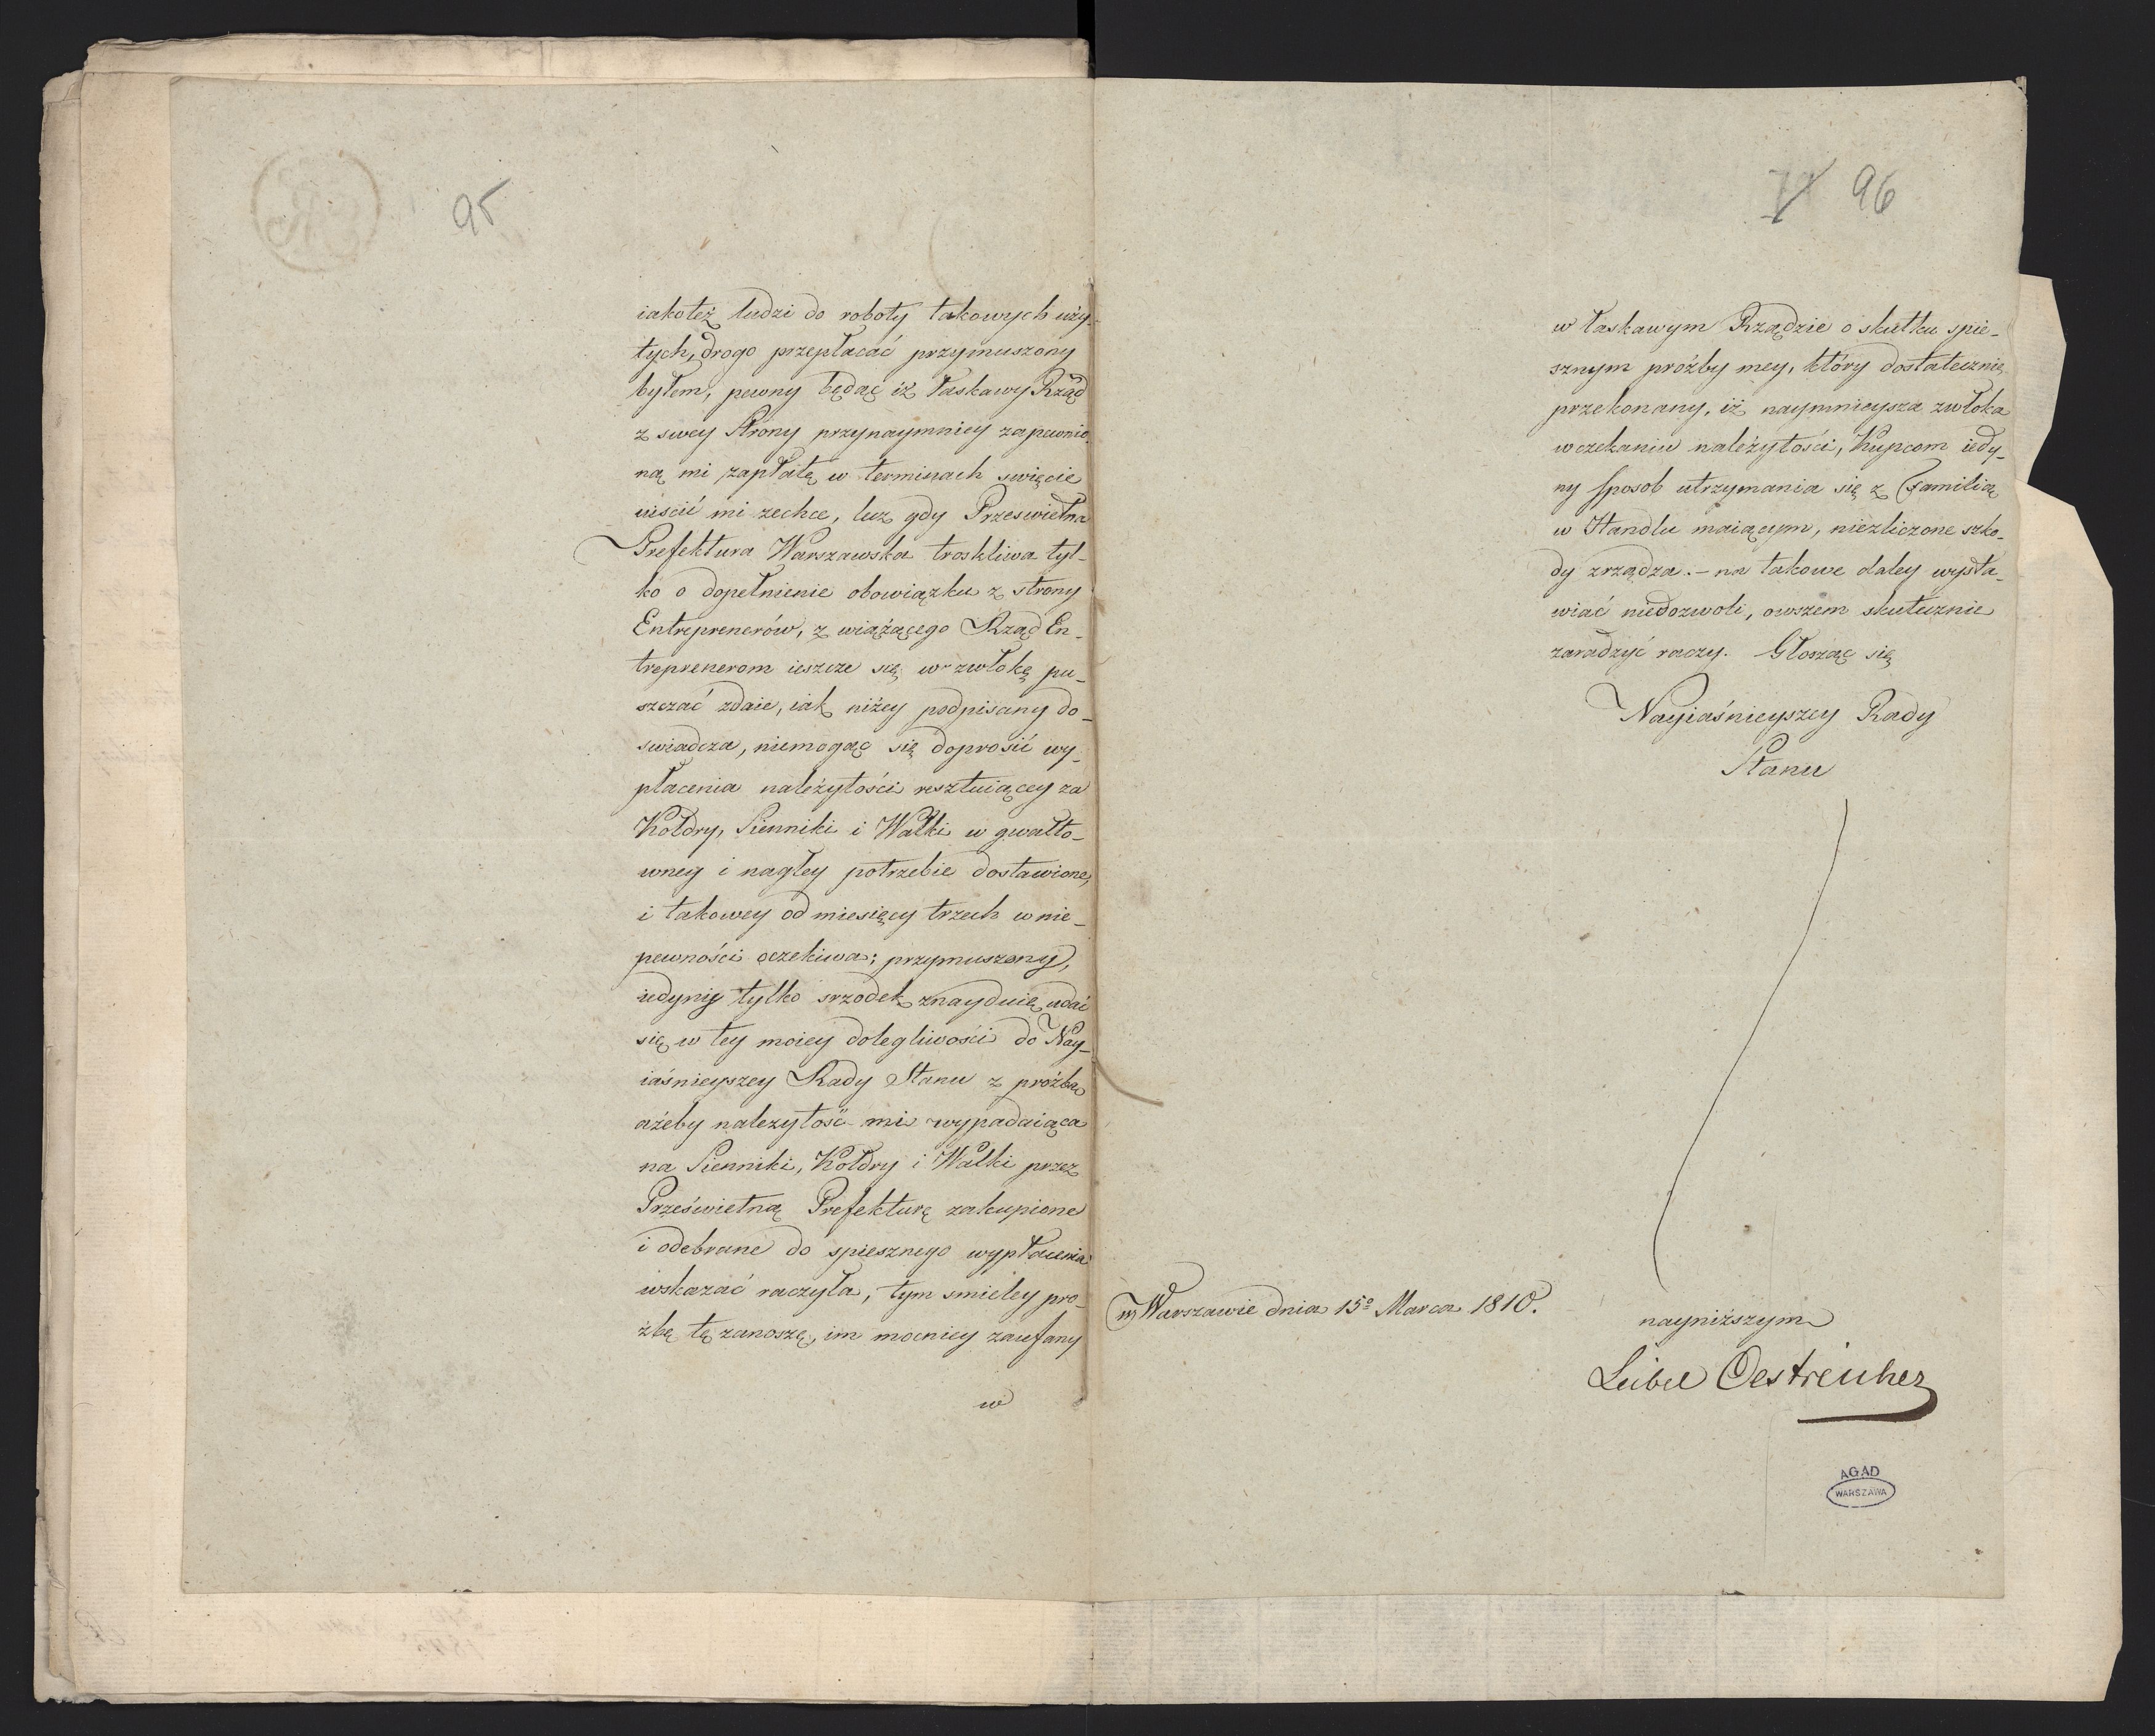 95
iakoteż ludzi do roboty takowych uży-
tych, drogo przepłacać przymuszony
byłem, pewny będąc iż łaskawy Rząd
z swey Strony przynaymniey zapewnio
ną mi zapłatę w terminach swięcie
uiscić mi zechce, lecz gdy Przeswietna
Prefektura Warszawska troskliwa tyl-
ko o dopełnienie obowiązku z strony
Entreprenerów, z wiążącego Rząd En-
treprenerom ieszcze się w zwłokę pu-
szczać zdaie, iak niżey podpisany do-
swiadcza, niemogąc się doprosić wy-
płacenia należytości resztuiącey za
Kołdry, Sienniki i Wałki w gwałto-
wney i nagłey potrzebie dostawione,
i takowey od miesięcy trzech w nie-
pewności oczekiwa; przymuszony,
iedynie tylko srzodek znayduię udać
się w tey moiey dolegliwości do Nay-
iaśnieyszey Rady Stanu z prożbą
ażeby należytość mi wypadaiąca
na Sienniki, Kołdry i Wałki przez
Prześwietną Prefekturę zakupione
i odebrane do spiesznego wypłacenia
wskazać raczyła, tym smieley pro-
żbę tę zanoszę, im mocniey zaufany
w
96
w łaskawym Rządzie o skutku spie-
sznym prożby mey, który dostatecznie
przekonany, iż naymnieysza zwłoka
w czekaniu należytości, Kupcom iedy-
ny sposob utrzymania się z Familią
w Handlu maiącym, niezliczone szko-
dy zrządza. - na takowe daley wysta-
wiać niedozwoli, owszem skutecznie
zaradzyć raczy. Głosząc się
Nayiaśnieyszey Rady
Stanu
w Warszawie dnia 15º Marca 1810.
nayniższym
Leibel Oestreicher
AGAD
WARSZAWA